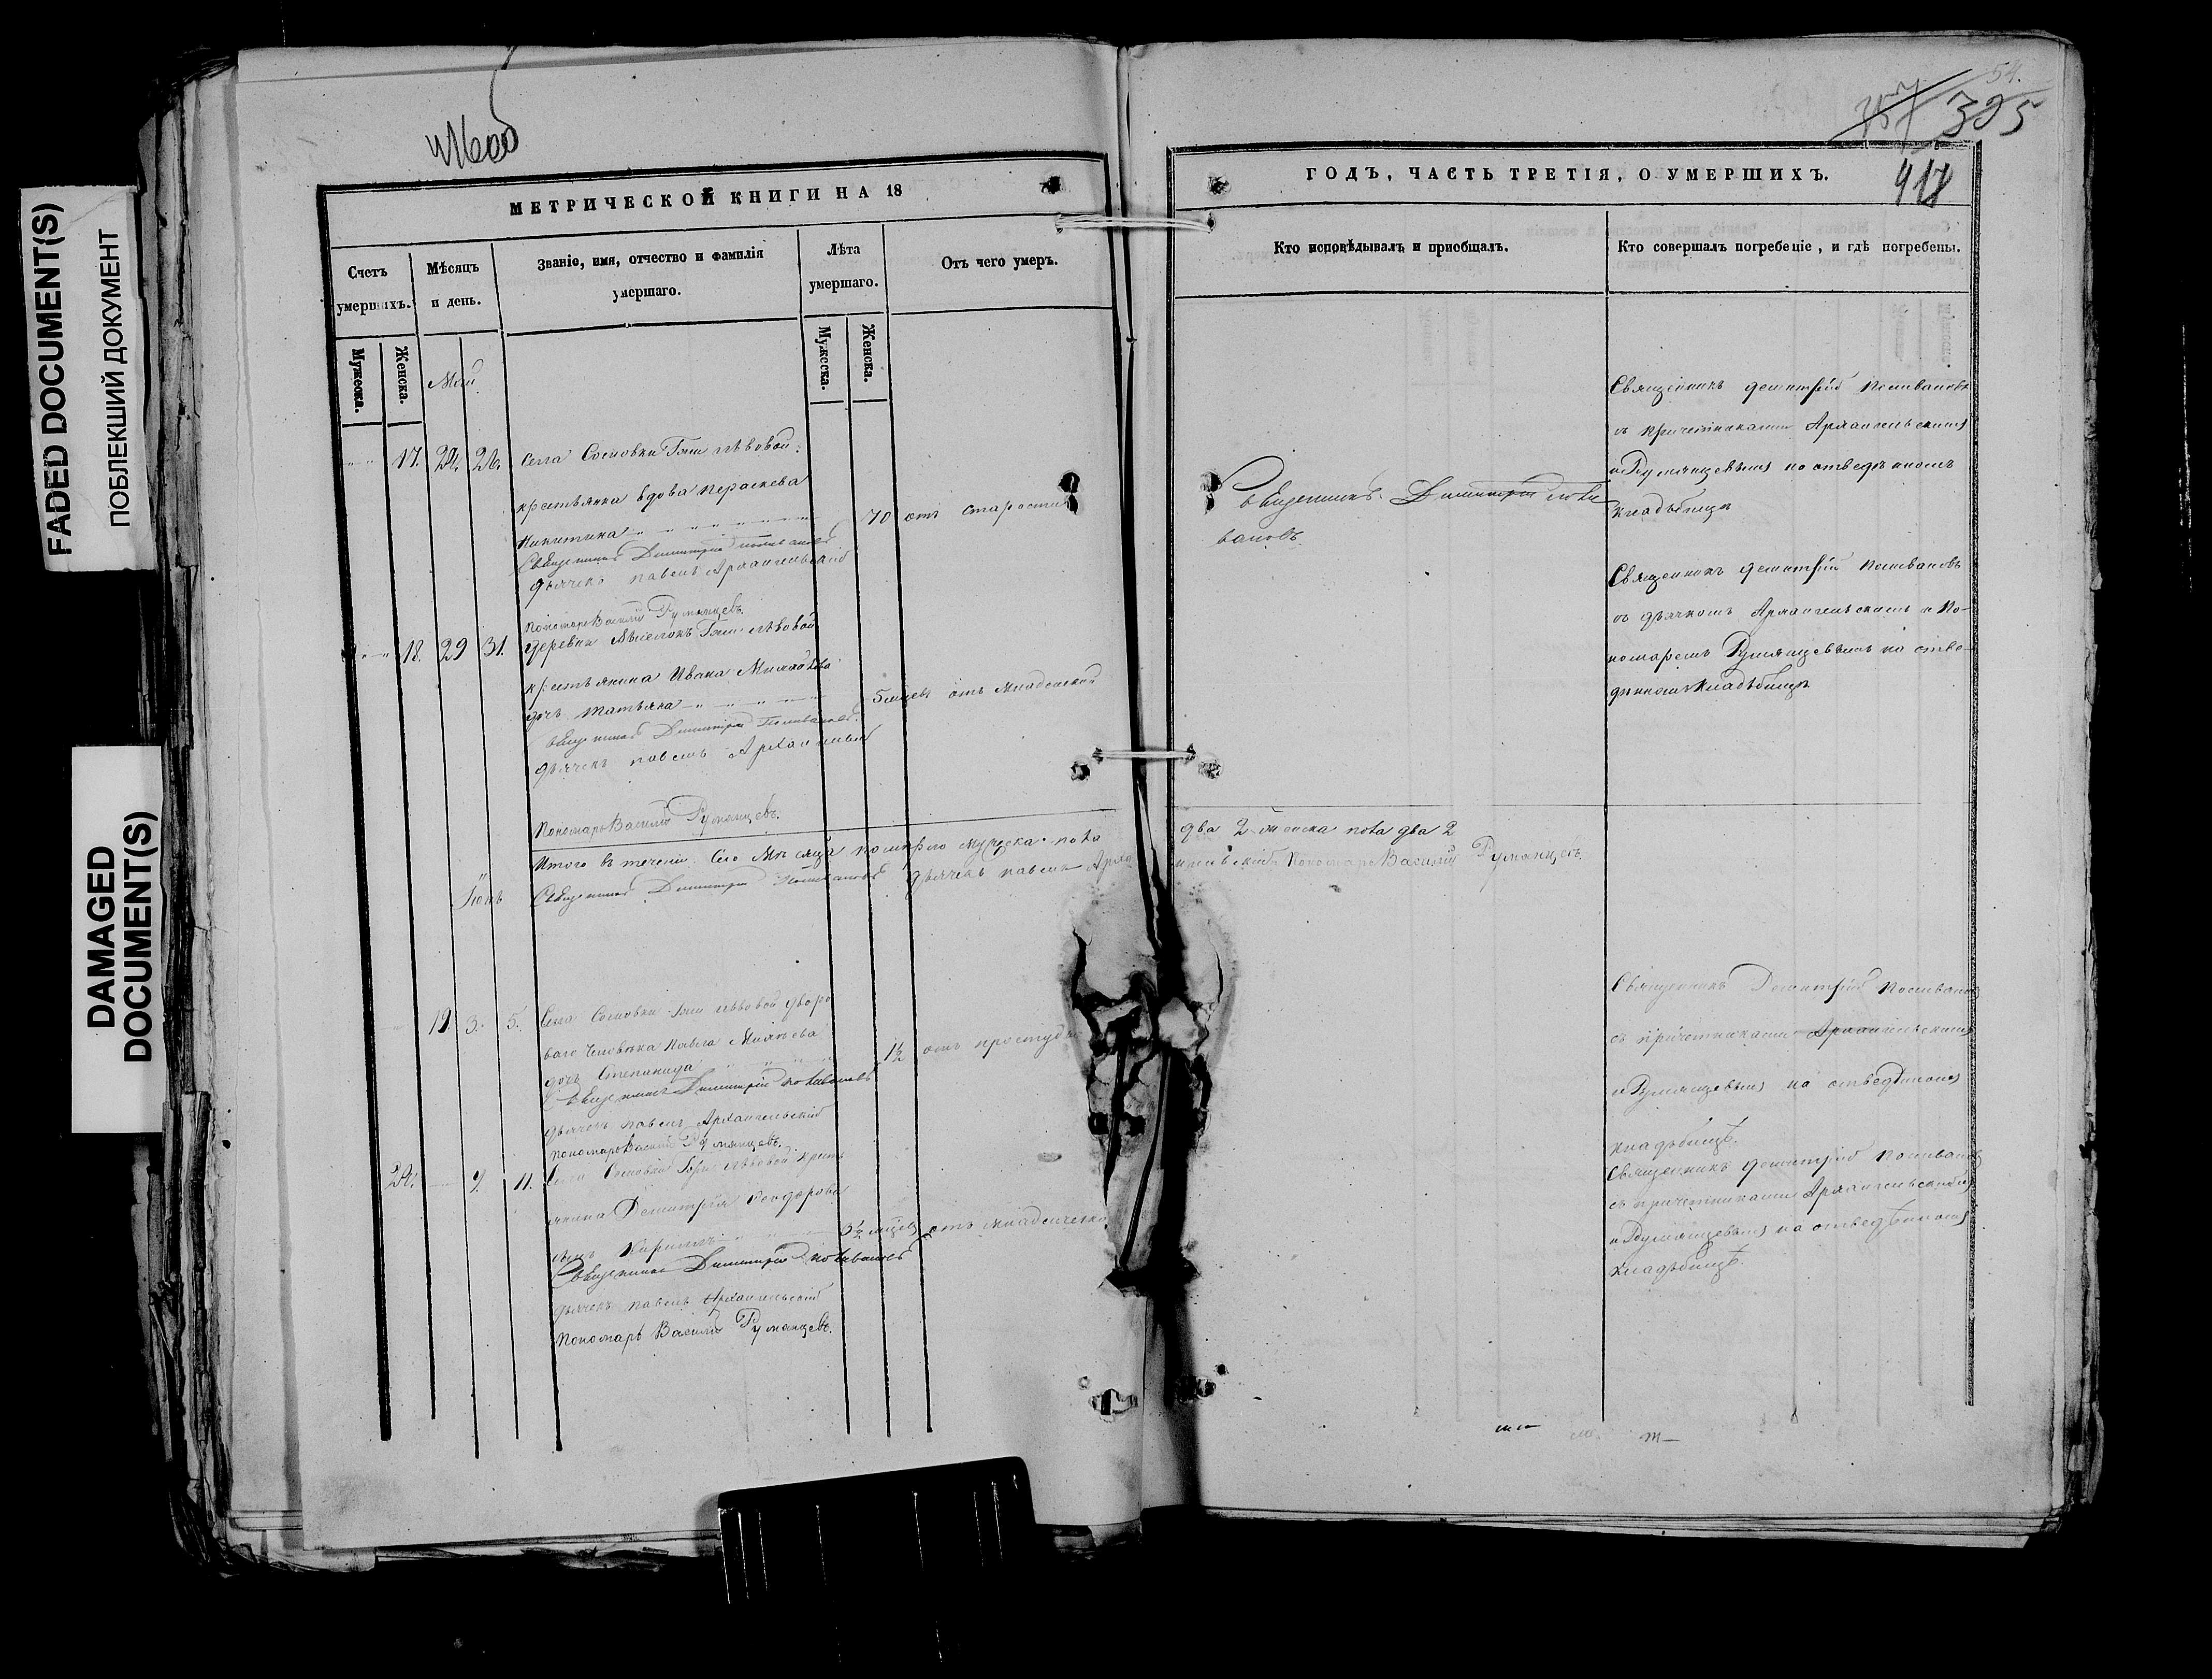 FADED DOCUMENT(S)
ПОБЛЕКШИЙ ДОКУМЕНТ
DAMAGED
DOCUMENT(S)
МЕТРИЧЕСКОЙ КНИГИ НА 18
Счетъ умершихъ.
Мѣсяцъ и день.
Званіе, имя, отчество и фамилія умершаго.
Лѣта умершаго.
Отъ чего умеръ.
Мужеска.
Женска.
Мужеска.
Женска.
Май
17. 24. 26. села Сосновки
крестьянка вдова Параскева
Никитина 70 отъ старости
Священникъ Димитрій Поливановъ
дьячекъ павелъ Архангельскій
пономарь Василій Румянцевъ.
18. 29 31. деревни
крестьянина Ивана
дочь татьяна 5 мцевъ отъ младенской
Священникъ Димитрій Поливановъ
дьячекъ павелъ Архангельскій
Пономарь Василій Румянцевъ.
Итого въ теченіи Сего Мѣсяца померло мужска пола
Священникъ Димитрій Поливановъ дьячекъ павелъ Арха
Іюнь
19. 3. 5. Села Сосновки дворо
ваго человѣка Павла
дочь Степанида 1½ отъ простуды
Священникъ Димитрій Поливановъ
дьячекъ павелъ Архангельскій
пономарь Василій Румянцевъ.
24. 9. 11. Села Сосновки крестъ
янина Димитрія Феодорова
сынъ Кириллъ 3½ мцевъ отъ младенческой
Священникъ Димитрій Поливановъ
дьячекъ павелъ Архангельскій
Пономарь Василій Румянцевъ.
54.
757 395
418
ГОДЪ, ЧАСТЬ ТРЕТІЯ, О УМЕРШИХЪ.
Кто исповѣдывалъ и пріобщалъ.
Кто совершалъ погребеніе, и гдѣ погребены.
Священникъ Димитрій Поли
вановъ
Священникъ димитрій Поливановъ
съ причетниками Архангельскимъ
и Румянцевымъ на отведенномъ
кладбищѣ
Священникъ димитрій Поливановъ
съ дьячкомъ Архангельскимъ и По-
номаремъ Румянцевымъ на отве-
денномъ кладбищѣ
два 2 женска пола два 2
нгельскій Пономарь Василій Румянцевъ.
Священникъ Димитрій Поливановъ
съ причетниками Архангельскимъ
и Румянцевымъ на отведенномъ
кладбищѣ.
Священникъ димитрій Поливановъ
съ причетниками Архангельскимъ
и Румянцевымъ на отведенномъ
кладбищѣ.